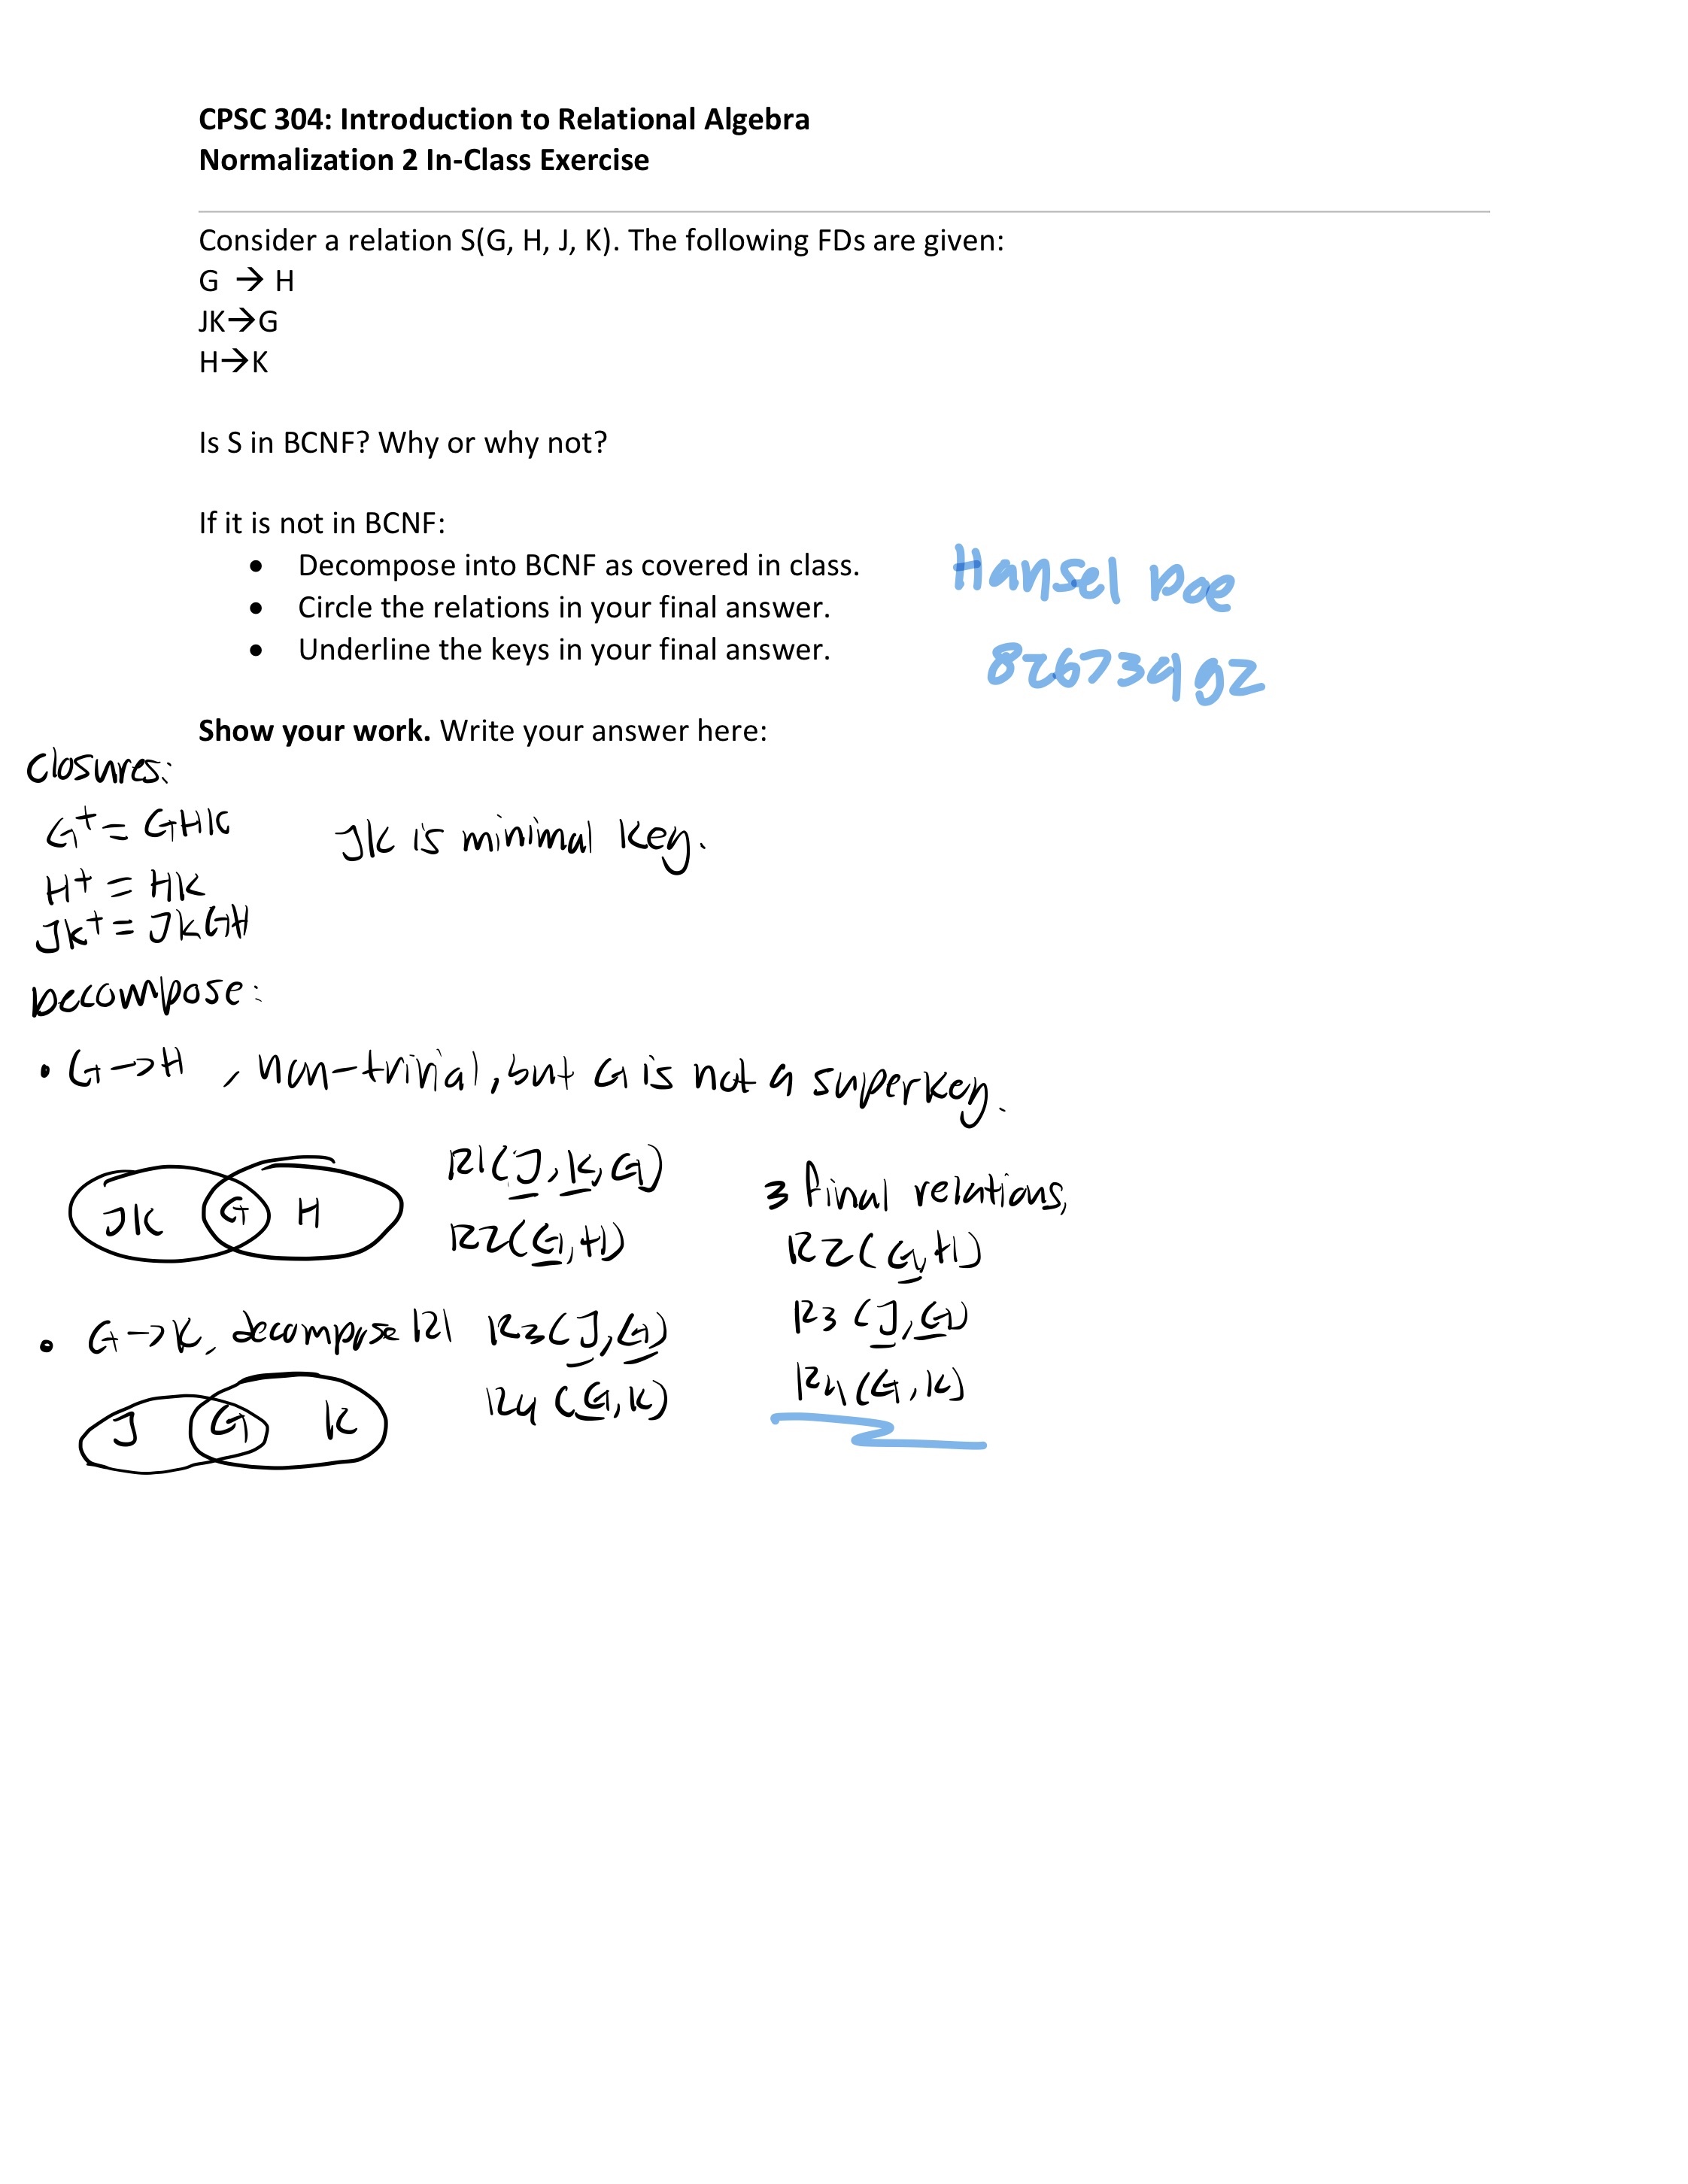 CPSC 304: Introduction to Relational Algebra
Normalization 2 In-Class Exercise
Consider a relation S(G, H, J, K). The following FDs are given:
G → H
JK→G
H→K
Is S in BCNF? Why or why not?
If it is not in BCNF:
• Decompose into BCNF as covered in class.
• Circle the relations in your final answer.
• Underline the keys in your final answer.
Hansel Doe
82673992
Show your work. Write your answer here:
Closures:
G+ = GHK
JK is minimal key.
H+ = HK
JK+ = JKGH
Decompose:
• G→H , non-trivial, but G is not a superkey.
JK G H
R1(J, K, G)
R2(G, H)
• G→K, decompose R1
R3(J, G)
R4(G, K)
J G K
3 final relations,
R2(G, H)
R3(J, G)
R4(G, K)